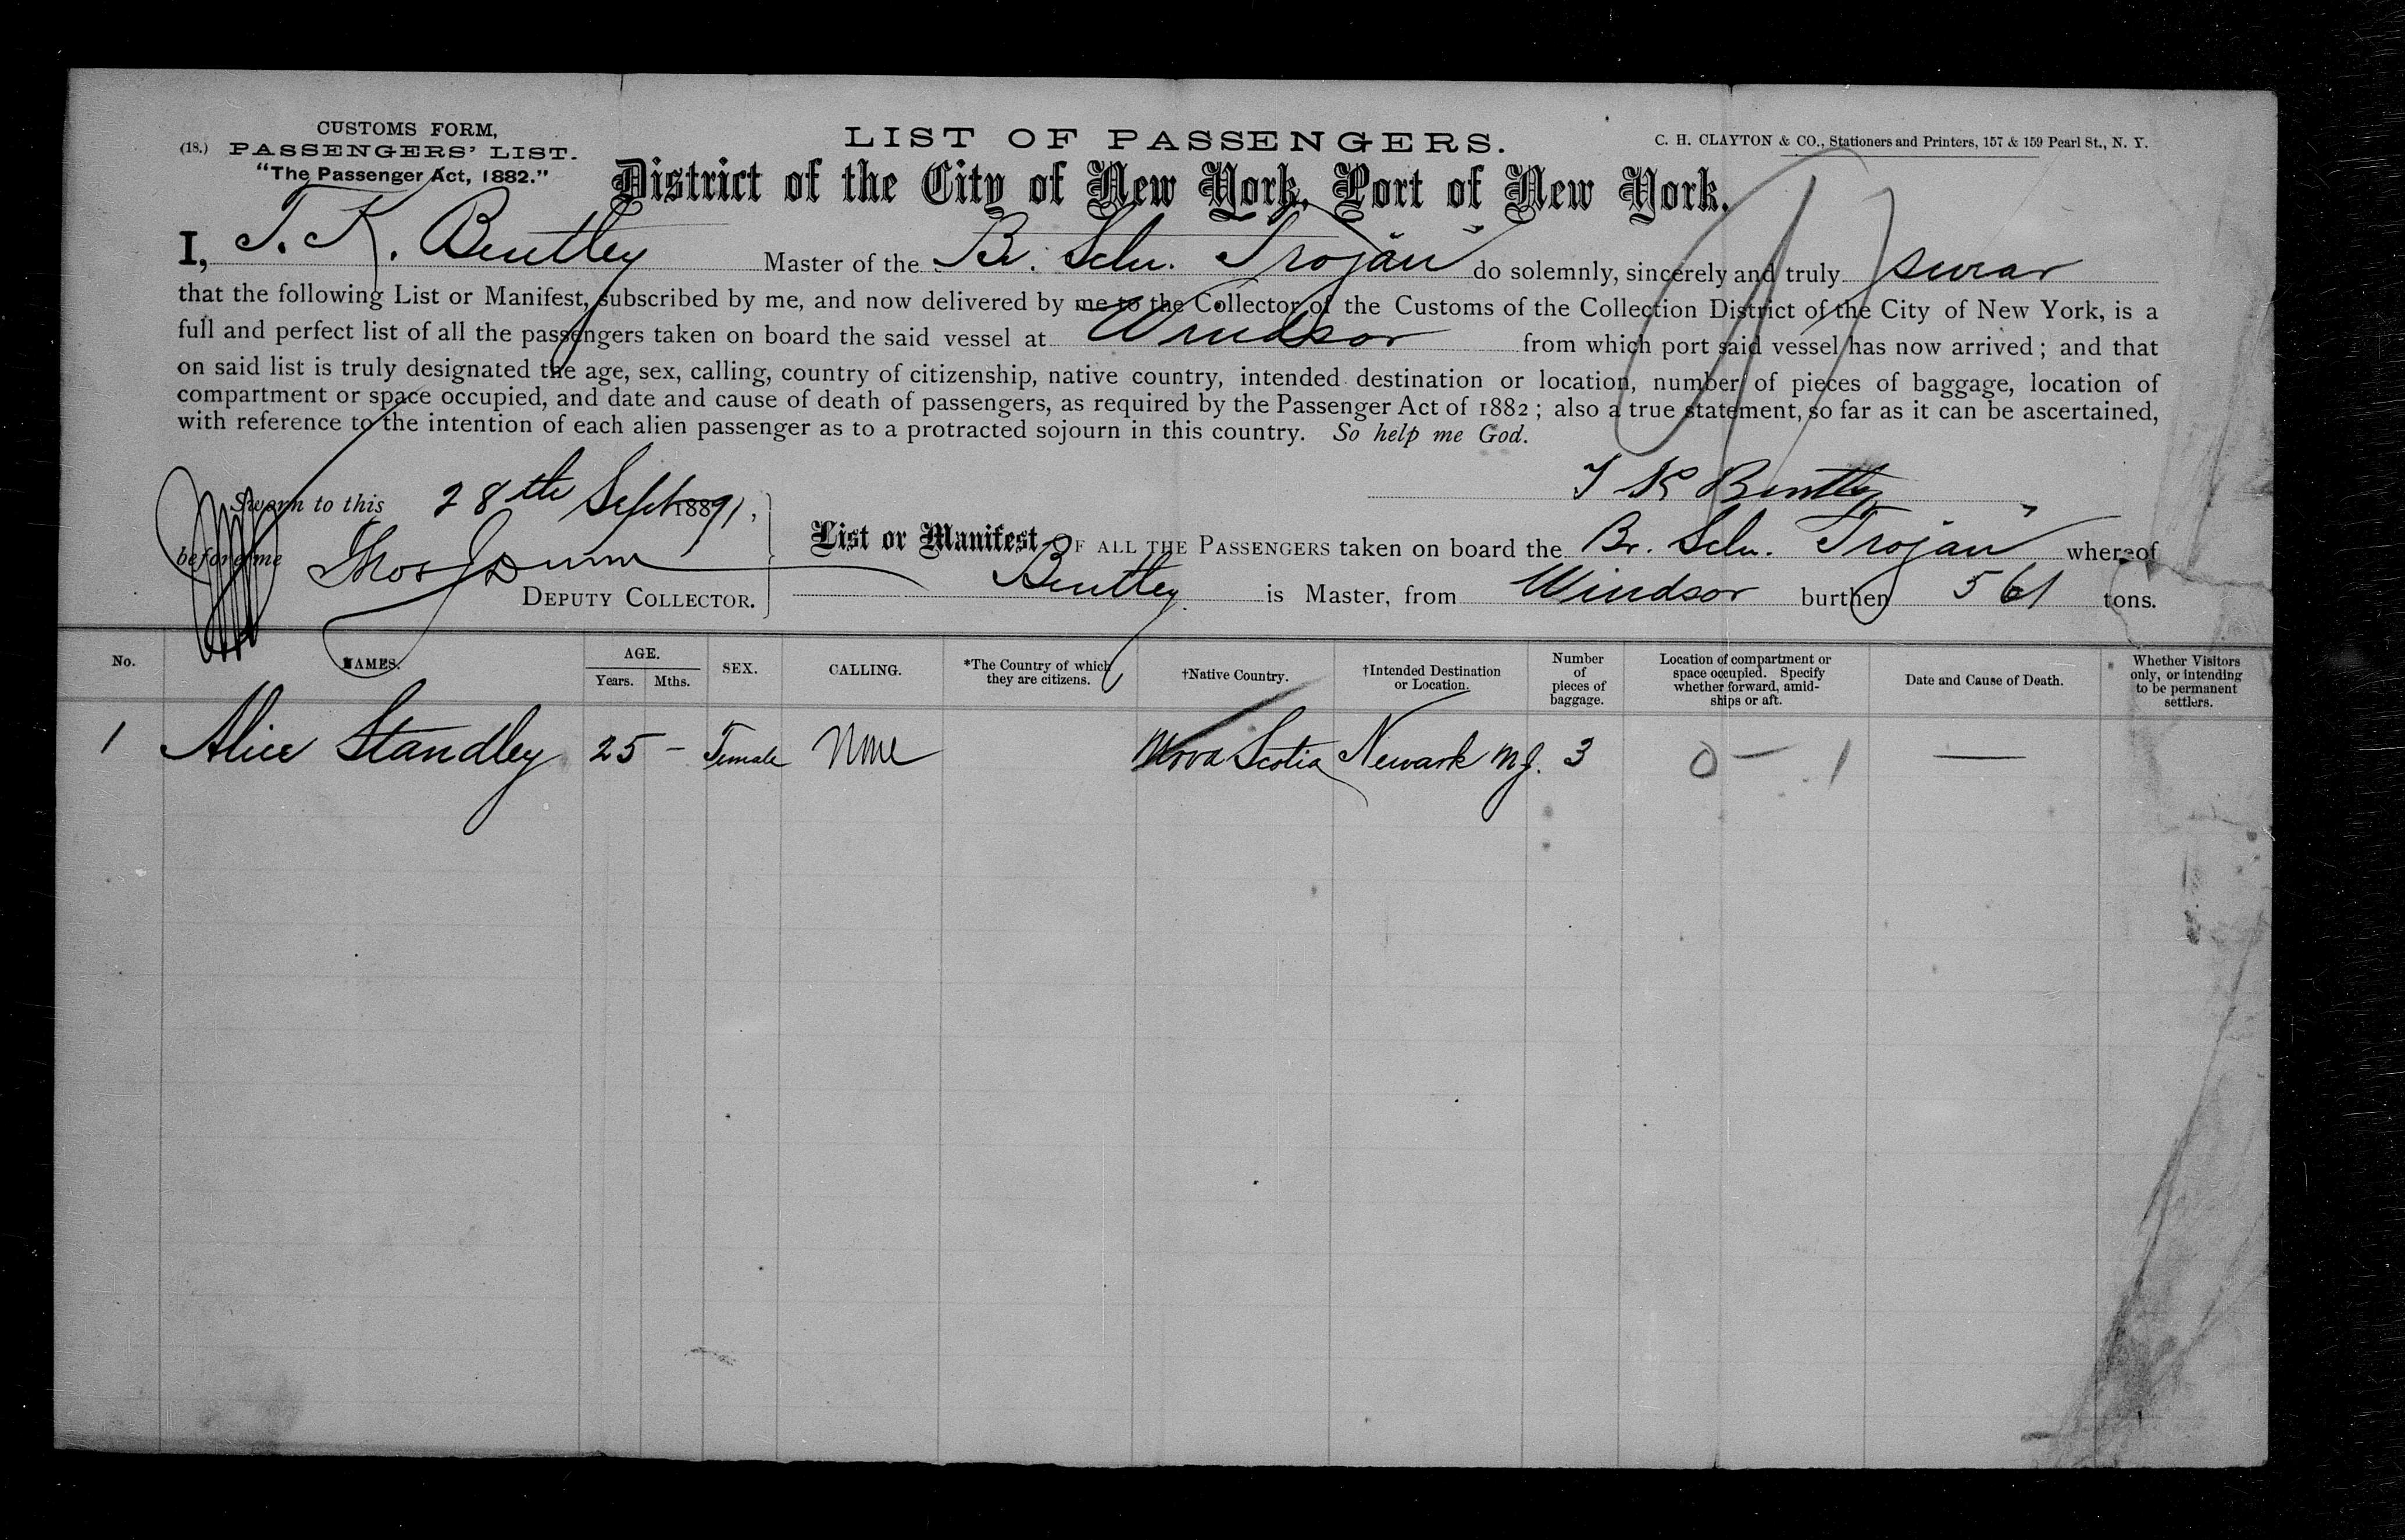 CUSTOMS FORM,
(18.) PASSENGERS' LIST.
"The Passenger Act, 1882."
LIST OF PASSENGERS.
C. H. CLAYTON & CO., Stationers and Printers, 157 & 159 Pearl St., N. Y.
District of the City of New York, Port of New York.
I, T. K. Bentley Master of the Br. Schr. "Trojan" do solemnly, sincerely and truly swear
that the following List or Manifest, subscribed by me, and now delivered by me to the Collector of the Customs of the Collection District of the City of New York, is a
full and perfect list of all the passengers taken on board the said vessel at Windsor from which port said vessel has now arrived; and that
on said list is truly designated the age, sex, calling, country of citizenship, native country, intended destination or location, number of pieces of baggage, location of
compartment or space occupied, and date and cause of death of passengers, as required by the Passenger Act of 1882; also a true statement, so far as it can be ascertained,
with reference to the intention of each alien passenger as to a protracted sojourn in this country. So help me God.
T K Bentley
Sworn to this 28th Sept 18891,
before me Thos J Dunn
DEPUTY COLLECTOR.
List or Manifest OF ALL THE PASSENGERS taken on board the Br. Schr. Trojan" whereof
Bentley is Master, from Windsor burthen 561 tons.
No. NAMES. AGE. Years. Mths. SEX. CALLING. *The Country of which they are citizens. †Native Country. †Intended Destination or Location. Number of pieces of baggage. Location of compartment or space occupied. Specify whether forward, amidships or aft. Date and Cause of Death. Whether Visitors only, or intending to be permanent settlers.
1 Alice Standley 25 – Female None Nova Scotia Newark NJ. 3 0 – 1 —